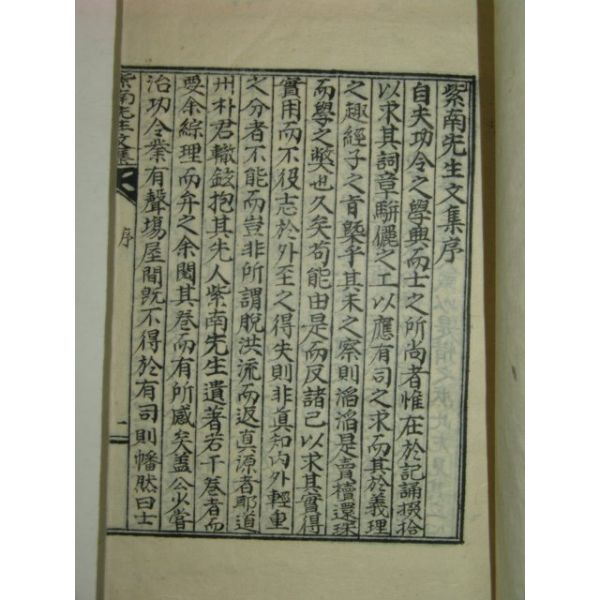 紫南先生文集序
自夫功令之學興而士之所尚者惟在於記誦掇拾
以求其詞章騈儷之工以應有司之求而其於義理
之趣經子之旨槩乎其未之察則滔滔是賣櫝還珠
而學之獘也久矣苟能由是而反諸己以求其實得
實用而不役志於外至之得失則非眞知內外輕重
之分者不能而豈非所謂脫洪流而返眞源者耶道
州朴君轍鉉抱其先人紫南先生遺著若干卷者而
要余綜理而弁之余閱其卷而有所感矣盖公少嘗
治功令業有聲場屋間旣不得於有司則幡然曰士
紫南先生文集
序